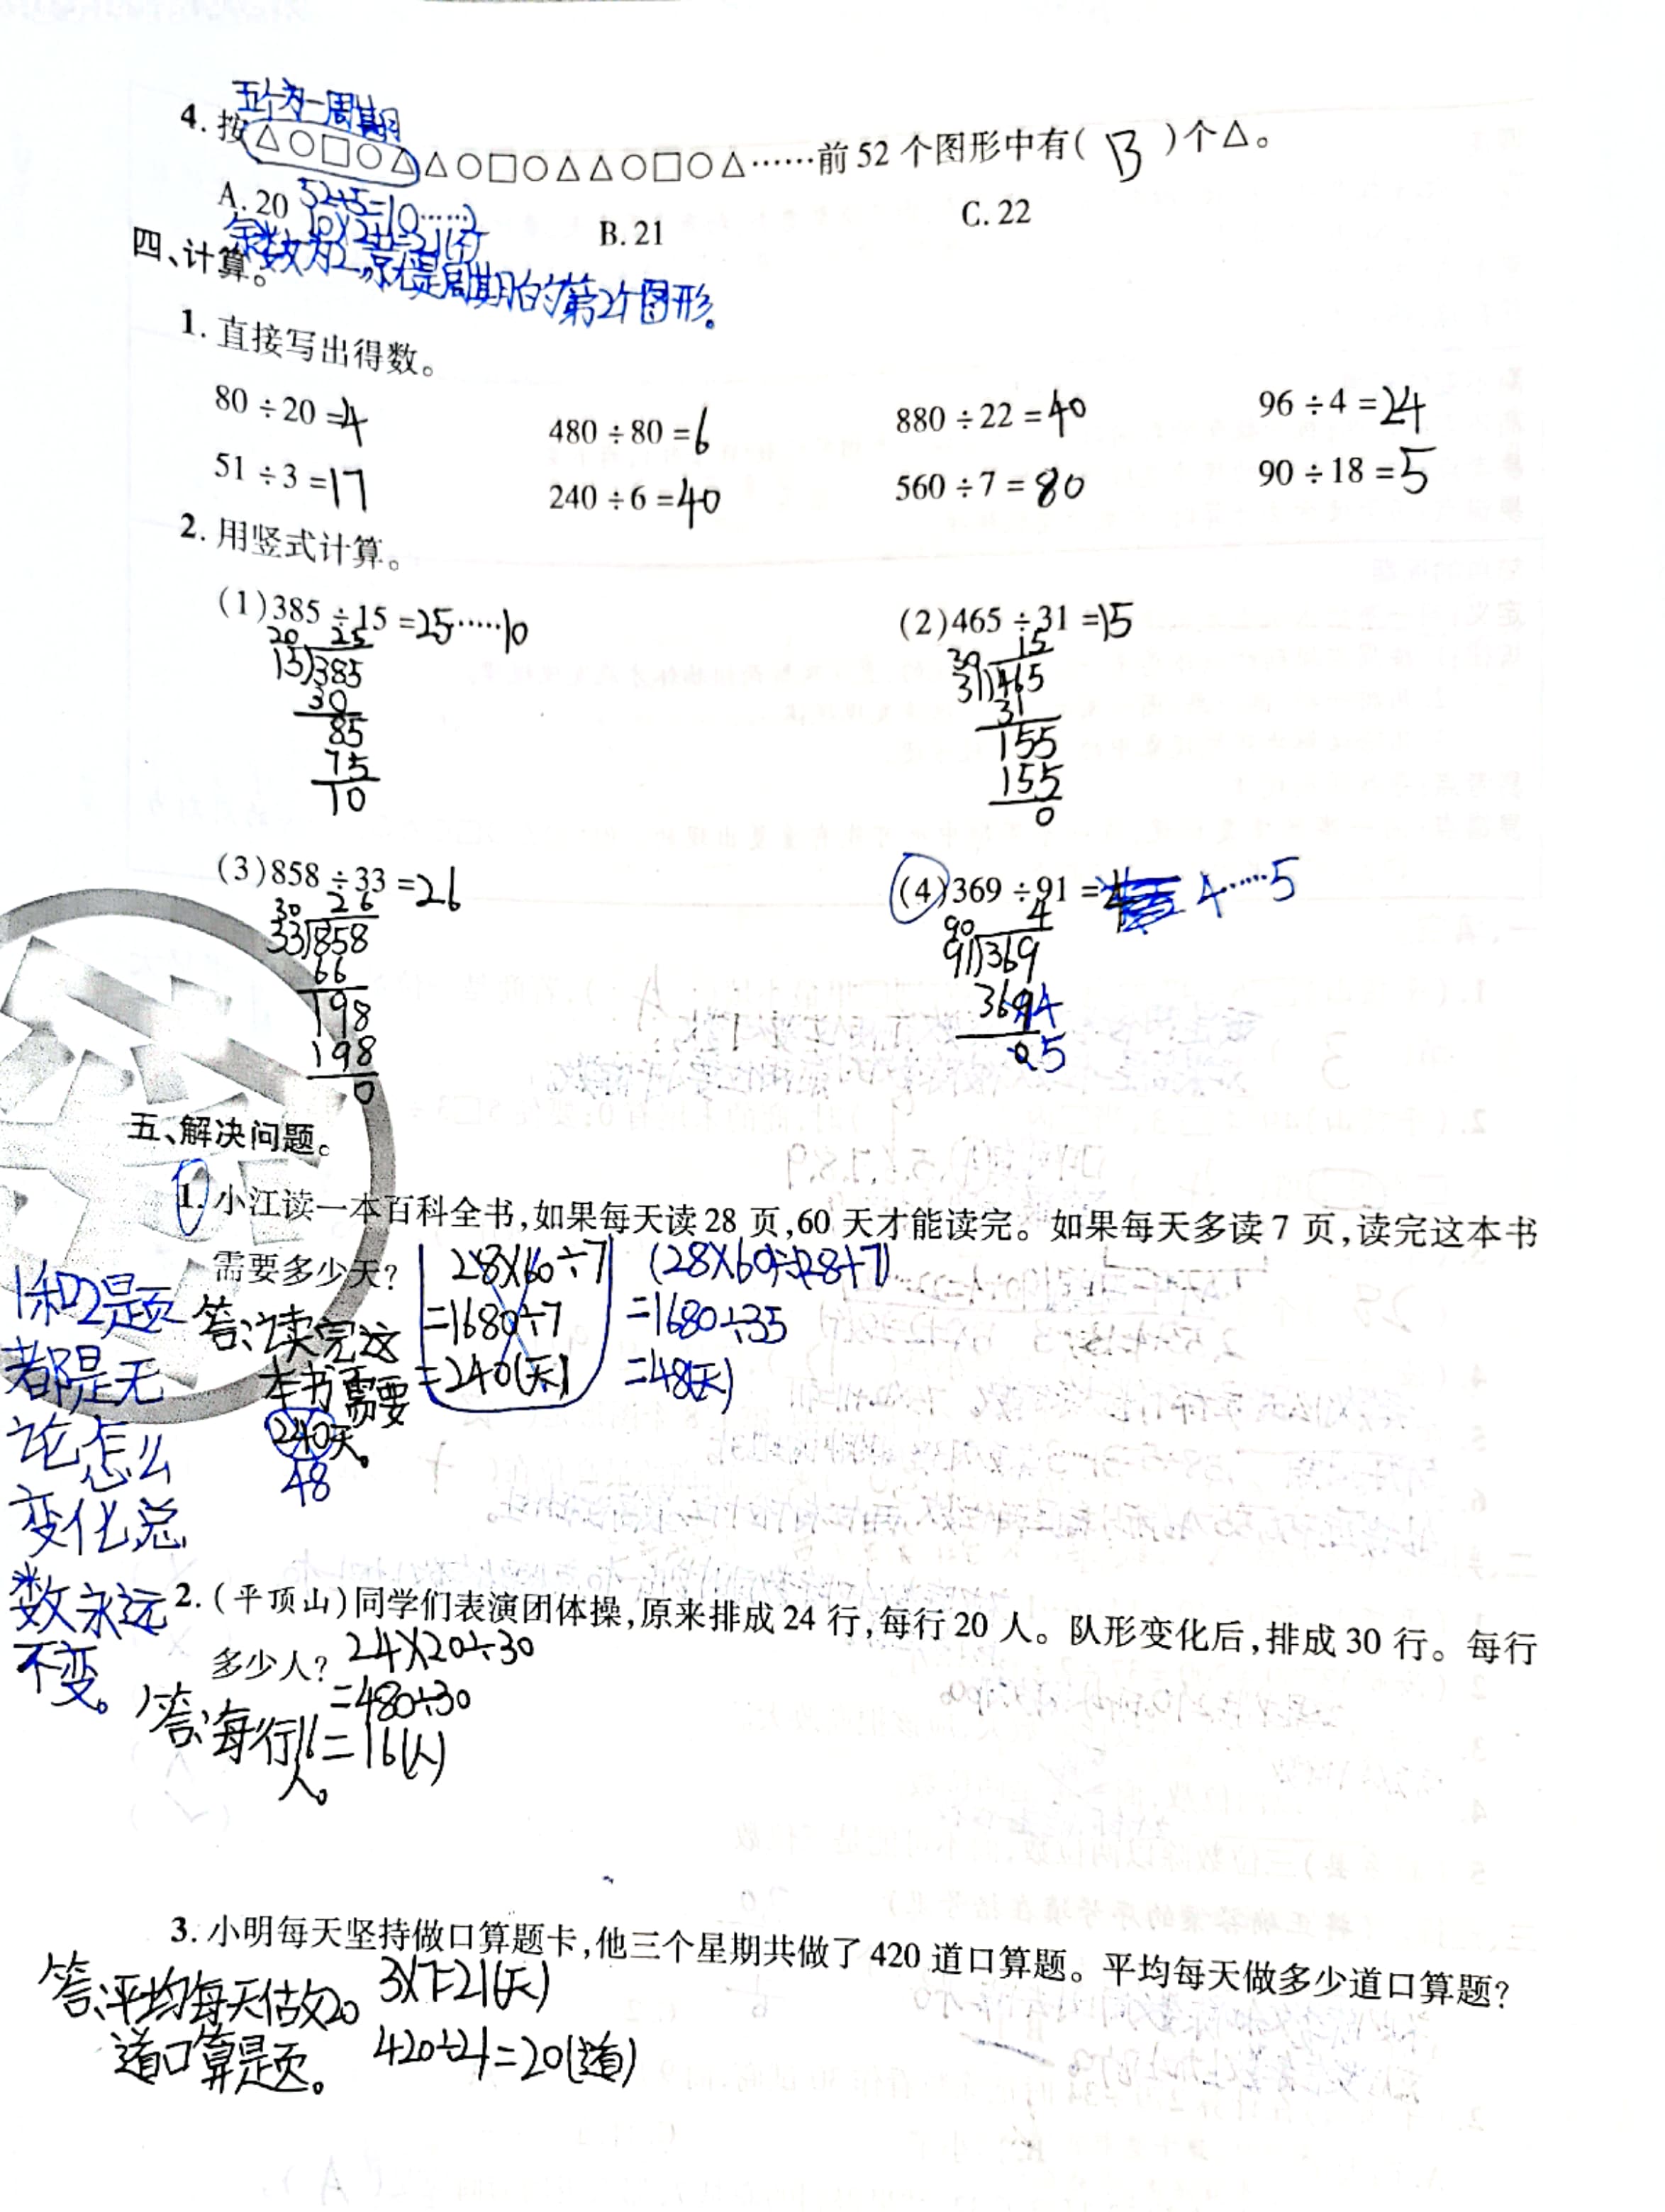 五个为一周期
4. 按△○□○△△○□○△△○□○△……前52个图形中有( B )个△。
A. 20 B. 21 C. 22
52÷5=10……2
10×2+1=21(个)
余数为2,就是周期的第2个图形。
四、计算。
1. 直接写出得数。
80÷20=4 480÷80=6 880÷22=40 96÷4=24
51÷3=17 240÷6=40 560÷7=80 90÷18=5
2. 用竖式计算。
(1)385÷15=25……10 (2)465÷31=15
20 25
15)385
30
85
75
10
30 15
31)465
31
155
155
0
(3)858÷33=26 (4)369÷91=4……5
30 26
33)858
66
198
198
0
90 4
91)369
364
5
五、解决问题。
1. 小江读一本百科全书,如果每天读28页,60天才能读完。如果每天多读7页,读完这本书
需要多少天?
28×60÷7
=1680÷7
=240(天)
(28×60)÷(28+7)
=1680÷35
=48(天)
答:读完这
本书需要
240天。
48
1和2题
都是无
论怎么
变化总
数永远
不变。
2. (平顶山)同学们表演团体操,原来排成24行,每行20人。队形变化后,排成30行。每行
多少人?
24×20÷30
=480÷30
=16(人)
答:每行16
人。
3. 小明每天坚持做口算题卡,他三个星期共做了420道口算题。平均每天做多少道口算题?
3×7=21(天)
420÷21=20(道)
答:平均每天做20
道口算题。